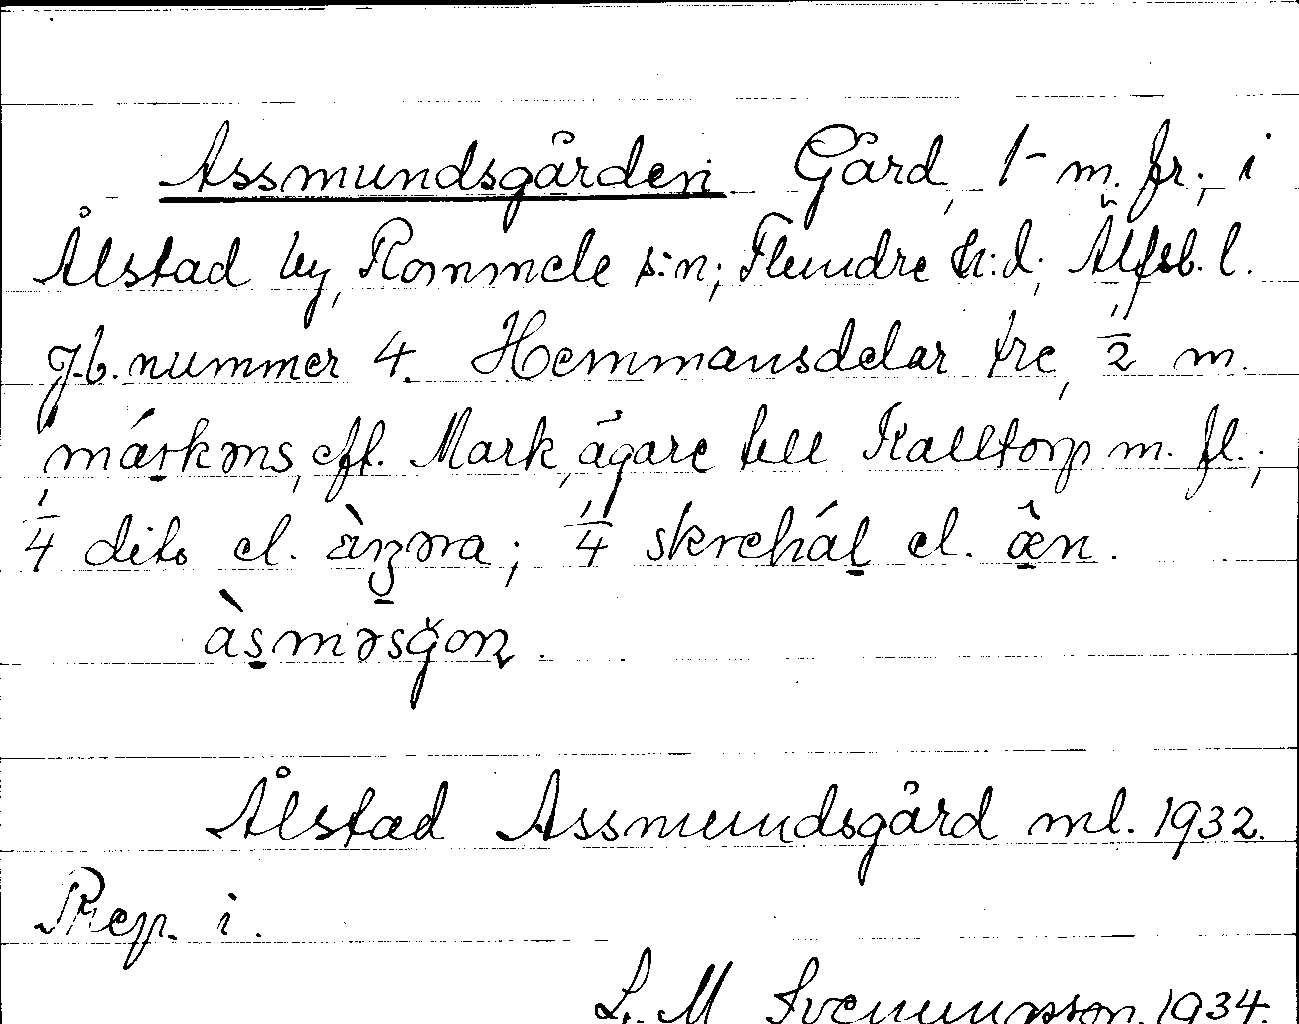 Assmundsgården. Gård, 1 m. fr., i
Ålstad by, Rommele s:n; Flundre h:d; Älfsb. l.
J.b. nummer 4. Hemmansdelar tre, 1/2 m.
márkəns, eft. Mark, ägare till Kalltorp m. fl.;
1/4 dito el. ; 1/4 el. æ̂n.
àsməsgon.
Ålstad Assmundsgård ml. 1932.
Prep. i.
L. M Svenungsson. 1934.